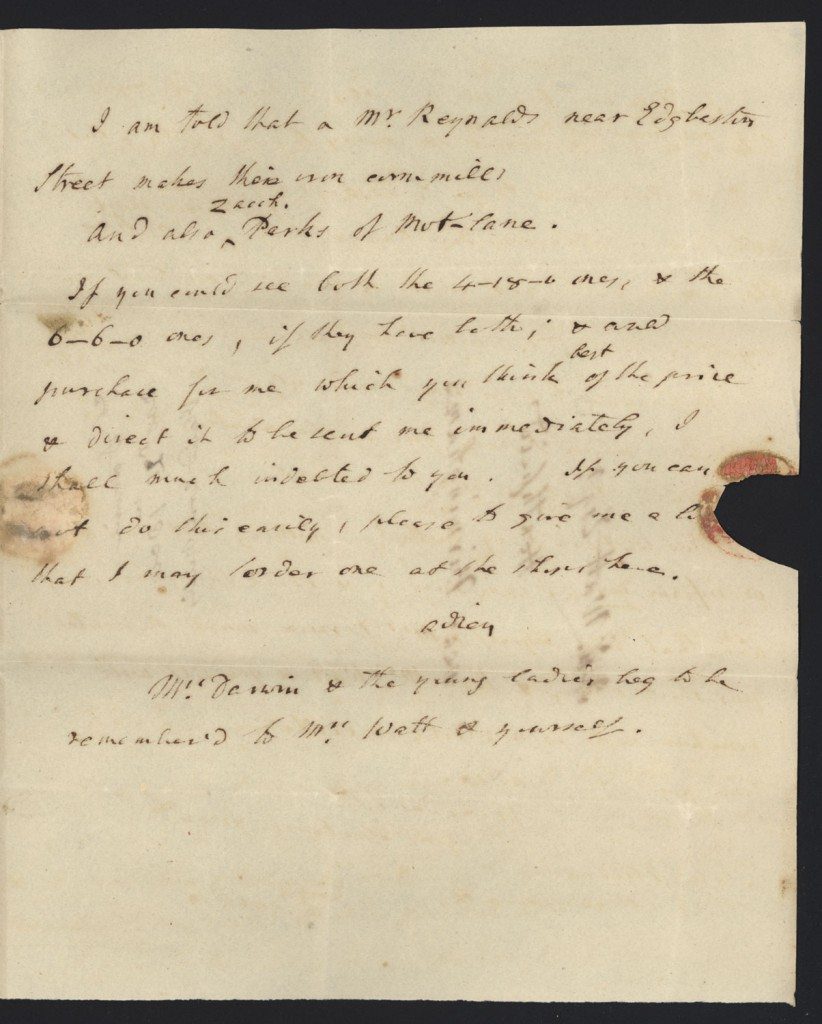 I am told that a Mr. Reynalds near Edgbaston
Street makes these iron corn-mills
zach.
And also ^ Parks of Mot-lane.
If you could see both the 4-18-0 ones, & the
6-6-0 ones, if they have both; & and
best
purchase for me which you think of the price
& direct it to be sent me immediately, I
shall much indebted to you. If you can
not do this easily, please to give me a li
that I may order one at the shops here.
adieu
Mrs. Darwin & the young ladies beg to be
remember'd to Mrs. Watt & yourself.